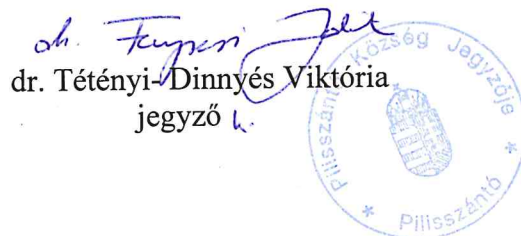 dr. Tétényi-Dinnyés Viktória
jegyző h.
Pilisszántó Község Jegyzője
* Pilisszántó *